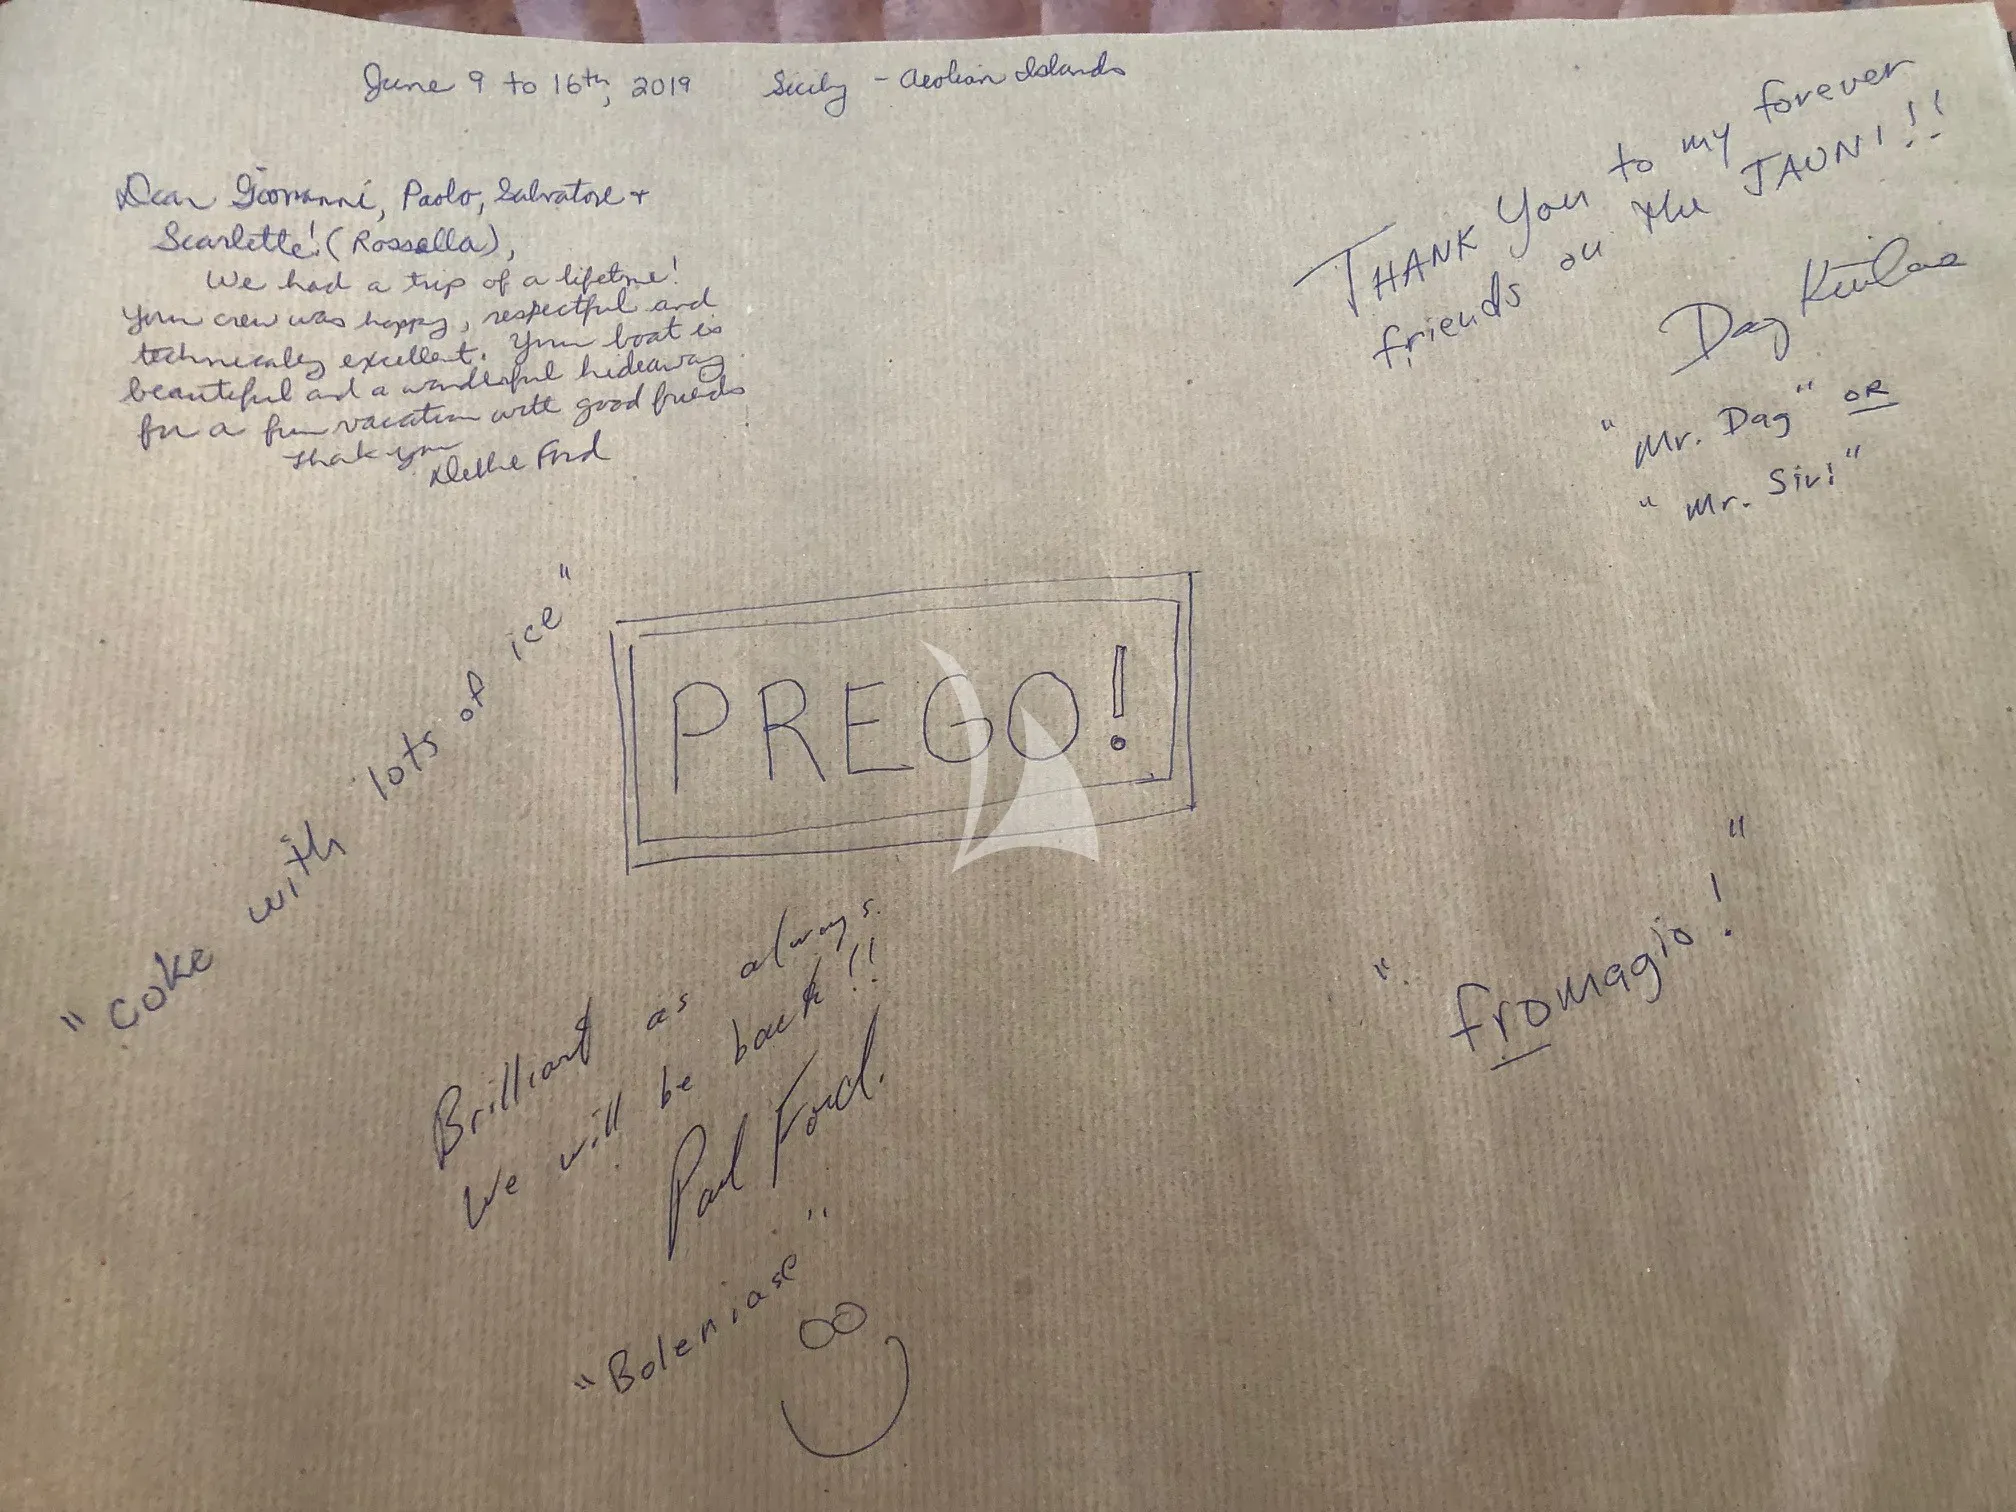 June 9 to 16th, 2019 Sicily - Aeolian Islands
Dear Giovanni, Paolo, Salvatore +
Scarlette! (Rossella),
We had a trip of a lifetime!
Your crew was happy, respectful and
technically excellent. Your boat is
beautiful and a wonderful hideaway
for a fun vacation with good friends
Thank you
Ford
THANK YOU to my forever
friends on the JAUNI!!
Dag
"Mr. Dag" OR
"Mr. Sir!"
"coke with lots of ice"
PREGO!
Brilliant as always.
We will be back!!
Paul Ford.
"fromagio!"
"Boleniase"